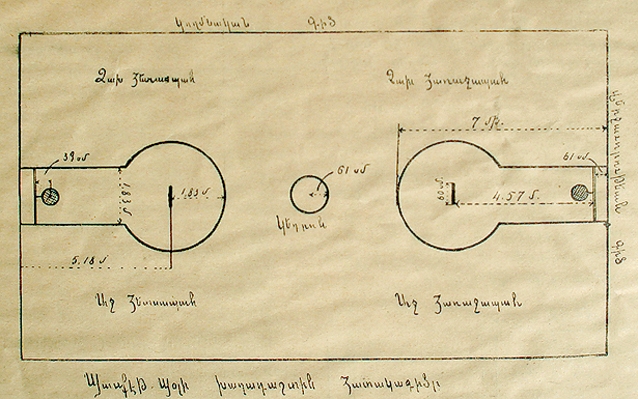 Կողմնական Գիծ
Ձախ Յետսապան
Ձախ Յառաջապան
7 մթ.
39 սմ
61 սմ
1.83 մ
1.83 մ
61 սմ
60 սմ
4.57 մ.
Կեդրոն
5.18 մ
Գիծ
Աջ Յետսապան
Աջ Յառաջապան
Պասքէթ-Պօլի խաղադաշտին Յատակագիծը